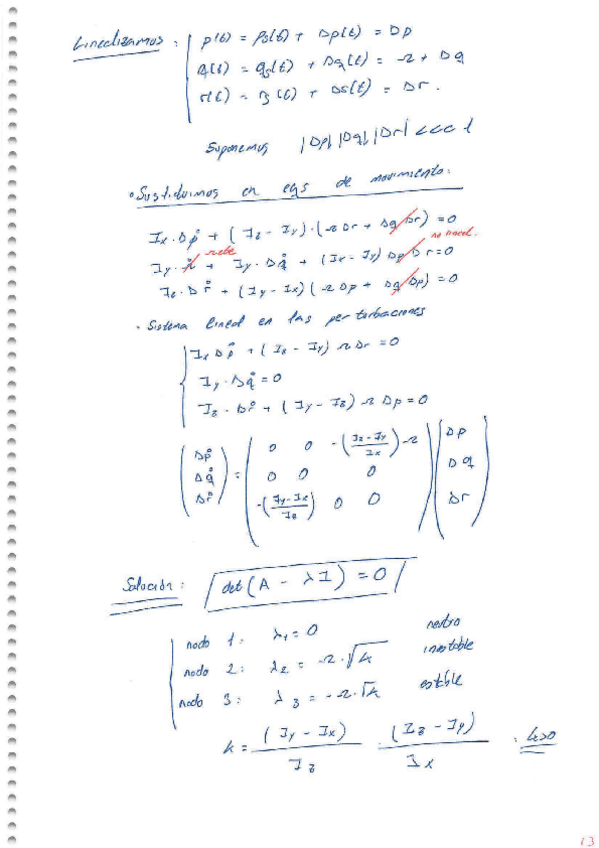 Linealizamos : p(t) = ps(t) + Δp(t) = Δp
q(t) = qs(t) + Δq(t) = Ω + Δq
r(t) = rs(t) + Δr(t) = Δr.
Suponemos |Δp| |Δq| |Δr| <<< 1
• Sustituimos en eqs de movimiento:
Ix · Δṗ + (Iz - Iy) · (Ω Δr + Δq Δr) = 0
no lineal.
Iy · Ω̇ + Iy · Δq̇ + (Ix - Iy) Δp Δr = 0
Iz · Δṙ + (Iy - Ix) (Ω Δp + Δq Δp) = 0
• Sistema lineal en las perturbaciones
Ix Δṗ + (Iz - Iy) Ω Δr = 0
Iy · Δq̇ = 0
Iz · Δṙ + (Iy - Iz) Ω Δp = 0
(Δṗ) = (0 0 -((Iz - Iy)/Ix) Ω) (Δp)
(Δq̇) (0 0 0) (Δq)
(Δṙ) (-((Iy - Ix)/Iz) 0 0) (Δr)
Solución : det (A - λI) = 0
modo 1: λ1 = 0 neutro
modo 2: λ2 = Ω · √k inestable
modo 3: λ3 = -Ω · √k estable
k = (Iy - Ix)/Iz (Iz - Iy)/Ix : k>0
13